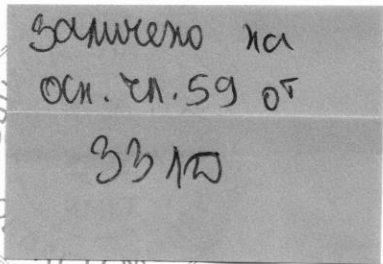 заличено на
осн. чл. 59 от
ЗЗЛД